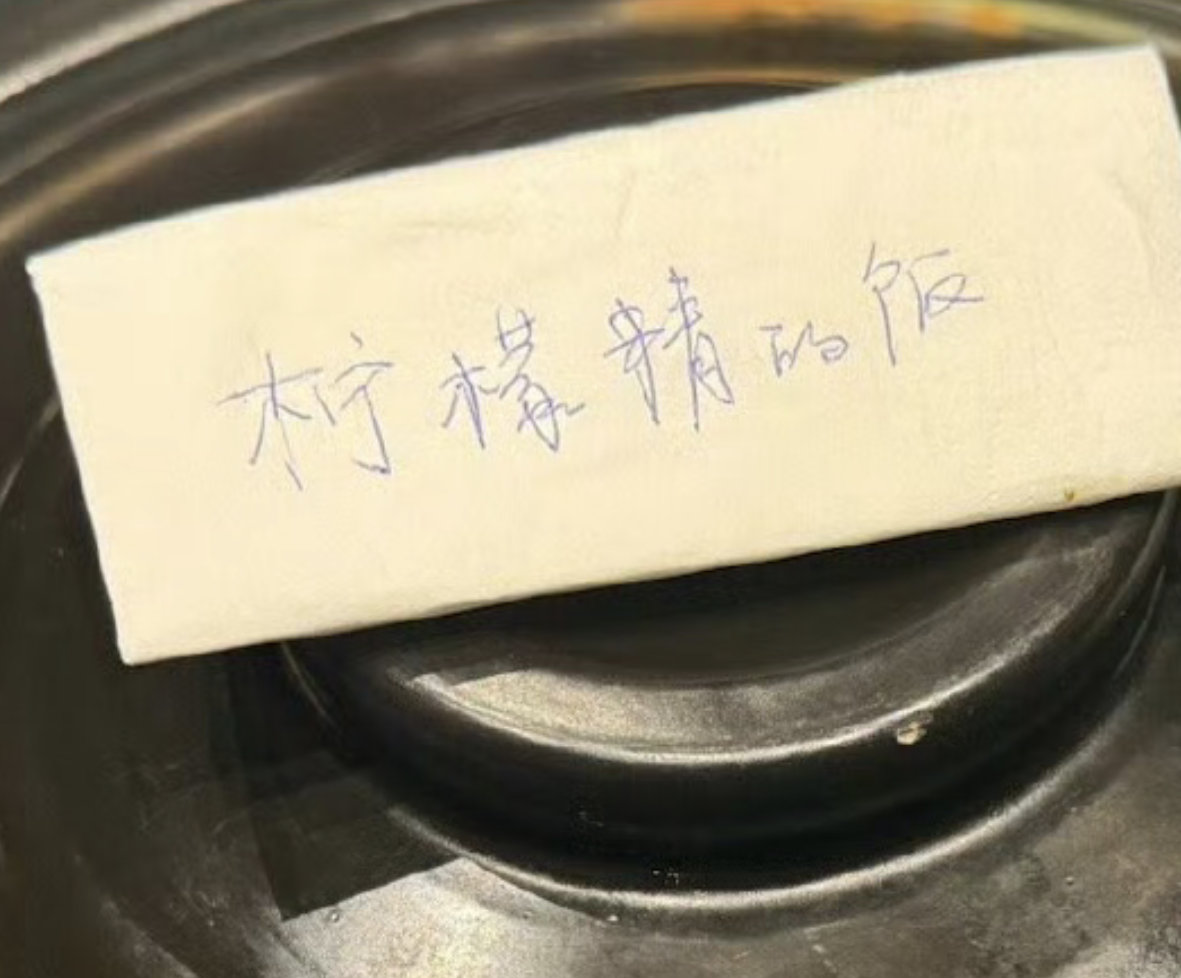 柠檬精的饭